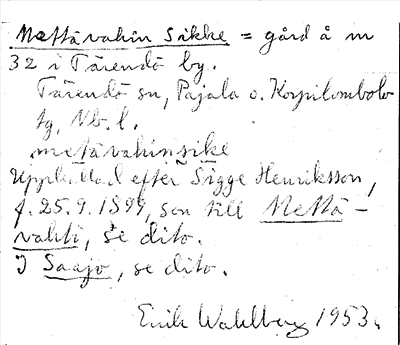 Mettävahin Sikke = gård å m
32 i Tärendö by.
Tärendö sn, Pajala o. Korpilombolo
tg, Nb. l.
metävahinsike
Uppkallad efter Sigge Henriksson,
f. 25.9.1899, son till Mettä-
vahti, se dito.
J Saajo, se dito.
Erik Wahlberg 1953.